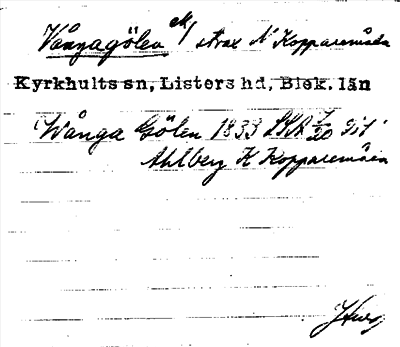 Vångagölen ek/ strax N Kopparemåla
Kyrkhults sn, Listers hd, Blek. län
Wånga Gölen 1833 LSA
Ahlberg K Kopparemåla